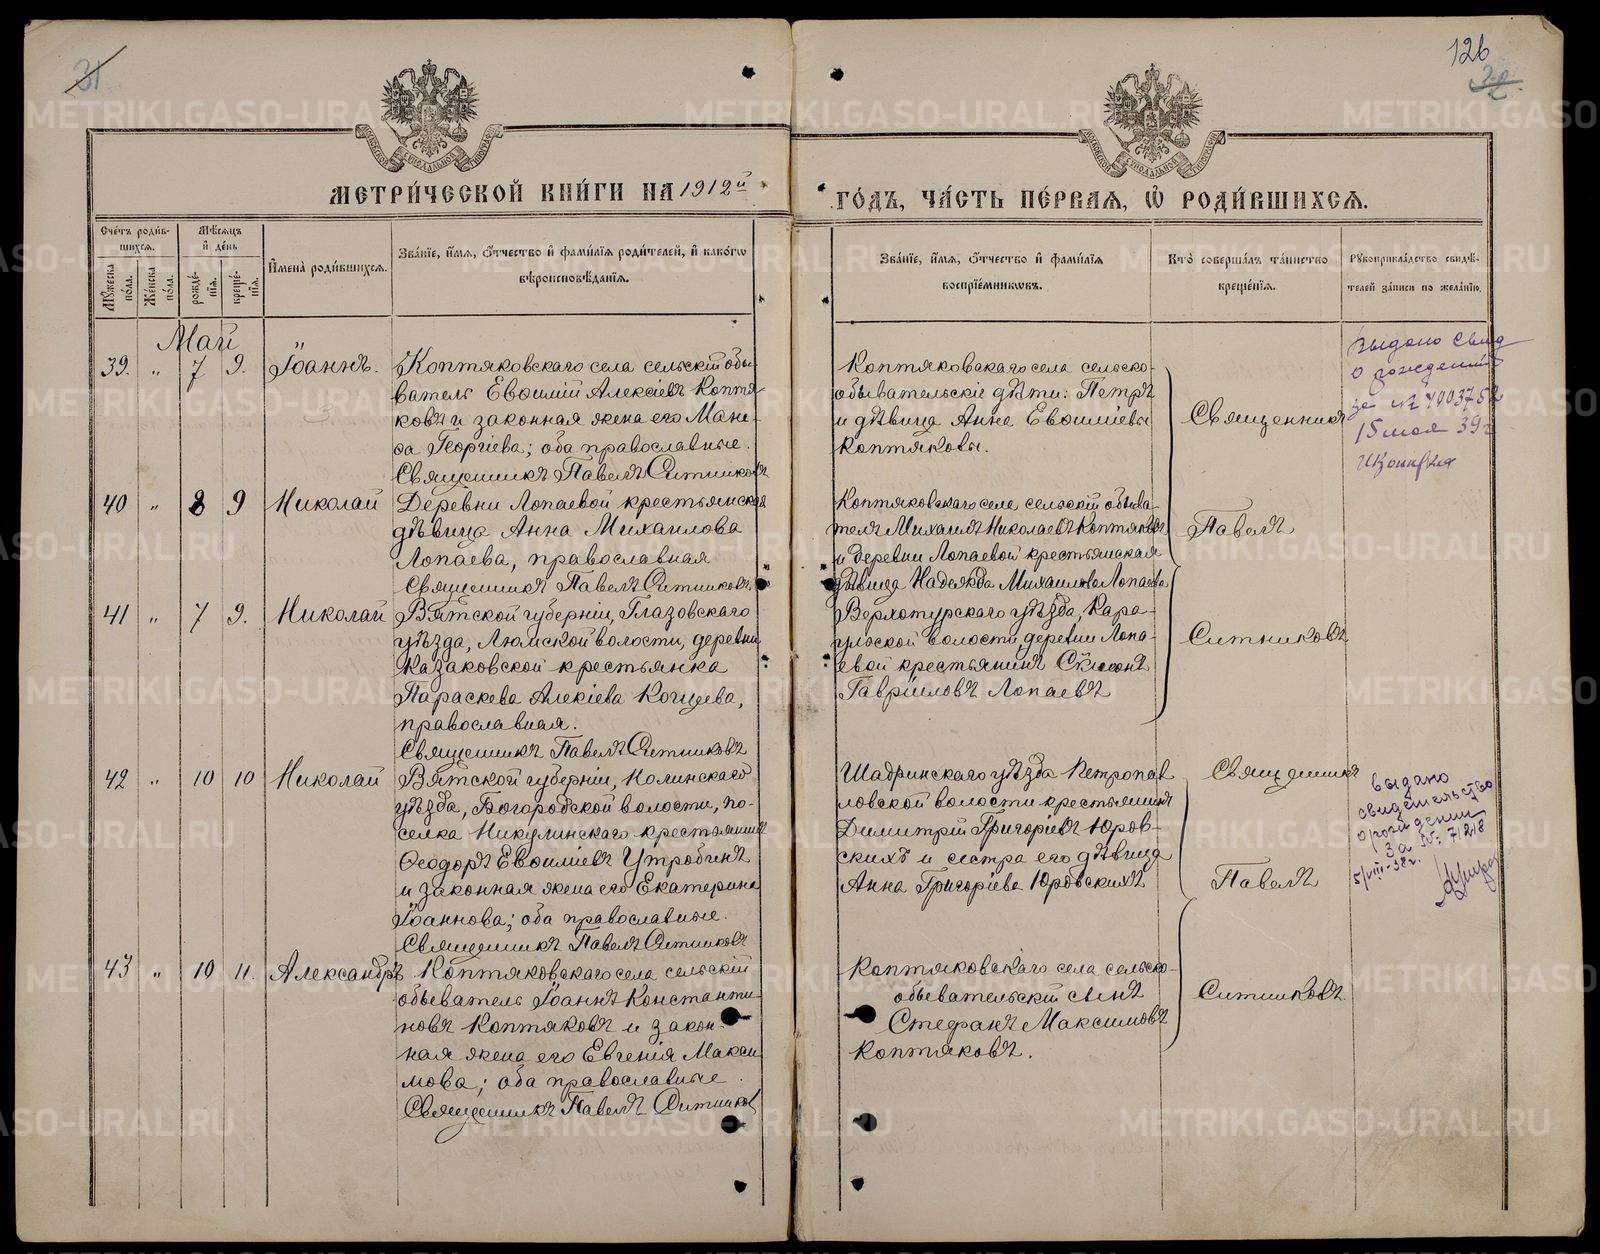 31
126
32
МЕТРИ́ЧЕСКОЙ КНИ́ГИ НА 1912й
ГО́ДЪ, ЧА́СТЬ ПЕ́РВАЯ, Ѡ҆ РОДИ́ВШИХСЯ.
Сче́тъ роди́в-
шихся.
Мꙋжеска по́ла.
Же́нска по́ла.
Мѣ́сяцъ и де́нь
рожде́-
нїя.
креще́-
нїя.
И҆мена̀ роди́вшихся.
Зва́нїе, и҆́мя, ѻ҆́тчество и҆ фами́лїя роди́телей, и҆ како́гѡ
вѣроисповѣ́данїя.
Зва́нїе, и҆́мя, ѻ҆́тчество и҆ фами́лїя
воспрїе́мниковъ.
Кто̀ соверша́лъ та́инство
креще́нїя.
Рꙋкоприкла́дство свидѣ́-
телей за́писи по жела́нїю.
Май
39. „ 7 9. Іоаннъ.
Коптяковскаго села сельскій обы-
ватель Евѳимій Алексіевъ Коптя-
ковъ и законная жена его Ма
ѳа Георгіева; оба православные.
Священникъ Павелъ Ситниковъ
Коптяковскаго села сельско-
обывательскіе дѣти: Петръ
и дѣвица Анна Евѳиміевы
Коптяковы.
Священникъ
выдано свид
о рождении
за № 4003752
15 мая 39 г
40 „ 8 9 Николай
Деревни Лопаевой крестьянская
дѣвица Анна Михаилова
Лопаева, православная
Священникъ Павелъ Ситниковъ
Коптяковскаго села сельскій обыва-
тель Михаилъ Николаевъ Коптяковъ
и деревни Лопаевой крестьянская
дѣвица Надежда Михаилова Лопаева.
Павелъ
41 „ 7 9. Николай
Вятской губерніи, Глазовскаго
уѣзда, Люмской волости, деревни
Казаковской крестьянка
Параскева Алексіева Кощеева,
православная.
Священникъ Павелъ Ситниковъ
Верхотурскаго уѣзда, Кара-
ульской волости, деревни Лопа-
евой крестьянинъ Сімеонъ
Гавріиловъ Лопаевъ
Ситниковъ
42 „ 10 10 Николай
Вятской губерніи, Нолинскаго
уѣзда, Богородской волости, по-
селка Никулинскаго крестьянинъ
Ѳеодоръ Евѳиміевъ Утробинъ
и законная жена его Екатерина
Іоаннова; оба православные.
Священникъ Павелъ Ситниковъ
Шадринскаго уѣзда Петропав
ловской волости крестьянинъ
Димитрій Григоріевъ Юров-
скихъ и сестра его дѣвица
Анна Григоріева Юровскихъ
Священникъ
Павелъ
выдано
свидетельство
о рождении
за №: 71218
5/VIII-38 г.
43 „ 10 11. Александръ
Коптяковскаго села сельскій
обыватель Іоаннъ Константи-
новъ Коптяковъ и закон-
ная жена его Евгенія Макси-
мова; оба православные.
Священникъ Павелъ Ситников
Коптяковскаго села сельско-
обывательскій сынъ
Стефанъ Максимовъ
Коптяковъ.
Ситниковъ
METRIKI.GASO-URAL.RU